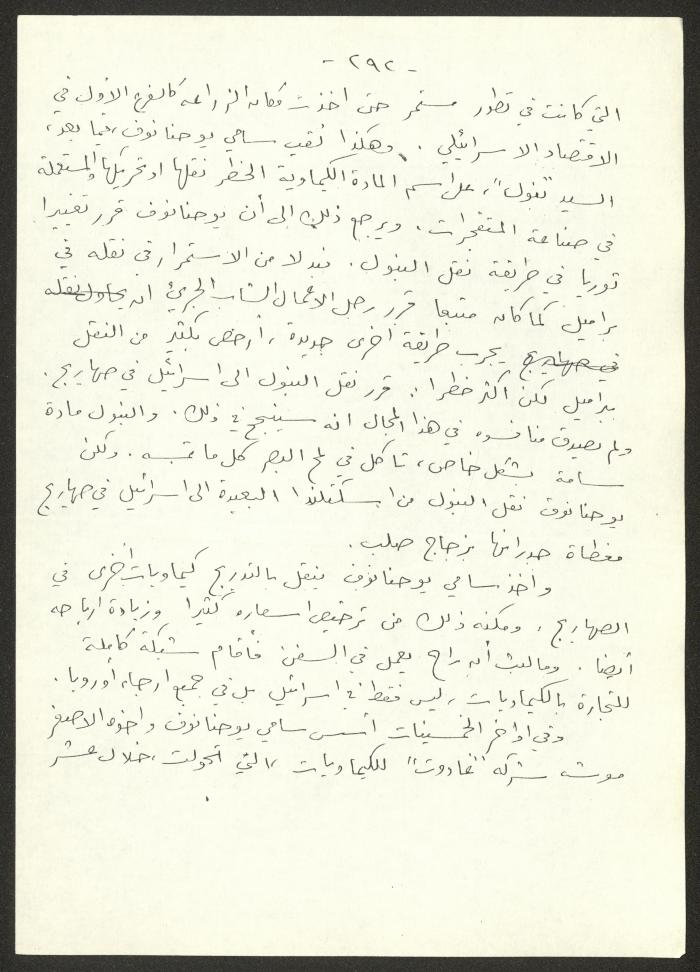 - ٢٩٢ -
التي كانت في تطور مستمر حتى اخذت مكان الزراعه كالفرع الأول في
الاقتصاد الاسرائيلي . وهكذا لُقب سامي يوحنانوف ، فيما بعد ،
السيد "فنول" ، على اسم المادة الكيماوية الخطر نقلها او تحريكها والمستعملة
في صناعة المتفجرات . ويرجع ذلك الى أن يوحنانوف قرر تغييرا
ثوريا في طريقة نقل الفنول . فبدلا من الاستمرار في نقله في
براميل كما كان متبعا قرر رجل الاعمال الشاب الجريئ ان يحاول نقله
في صهاريج يجرب طريقة اخرى جديدة ، أرخص بكثير من النقل
ببراميل لكن أكثر خطرا : قرر نقل الفنول الى اسرائيل في صهاريج .
ولم يصدق منافسوه في هذا المجال انه سينجح في ذلك . والفنول مادة
سامة بشكل خاص ، تأكل في لمح البصر كل ما تمسه . ولكن
يوحنانوف نقل الفنول من اسكتلندا البعيدة الى اسرائيل في صهاريج
مغطاة جدرانها بزجاج صلب .
وأخذ سامي يوحنانوف ينقل بالتدريج كيماويات أخرى في
الصهاريج ، ومكنه ذلك من ترخيص اسعاره كثيرا وزيادة ارباحه
أيضا . وما لبث أن راح يعمل في السفن فأقام شبكة كاملة
للتجارة بالكيماويات ، ليس فقط في اسرائيل بل في جميع ارجاء أوروبا .
وفي اواخر الخمسينات أسس سامي يوحنانوف واخوه الاصغر
موشه شركة "غادوت" للكيماويات ، التي تحولت ، خلال عشر